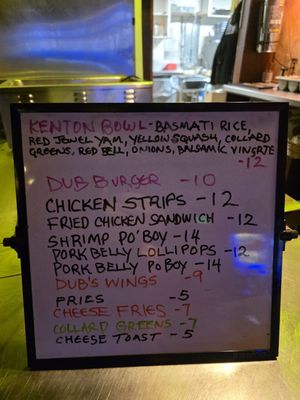 KENTON BOWL - BASMATI RICE,
RED JEWEL YAM, YELLOW SQUASH, COLLARD
GREENS, RED BELL, ONIONS, BALSAMIC VINGRTE
-12
DUB BURGER - 10
CHICKEN STRIPS - 12
FRIED CHICKEN SANDWICH - 12
SHRIMP PO'BOY - 14
PORK BELLY LOLLIPOPS - 12
PORK BELLY PO BOY - 14
DUB'S WINGS - 9
FRIES - 5
CHEESE FRIES - 7
COLLARD GREENS - 7
CHEESE TOAST - 5